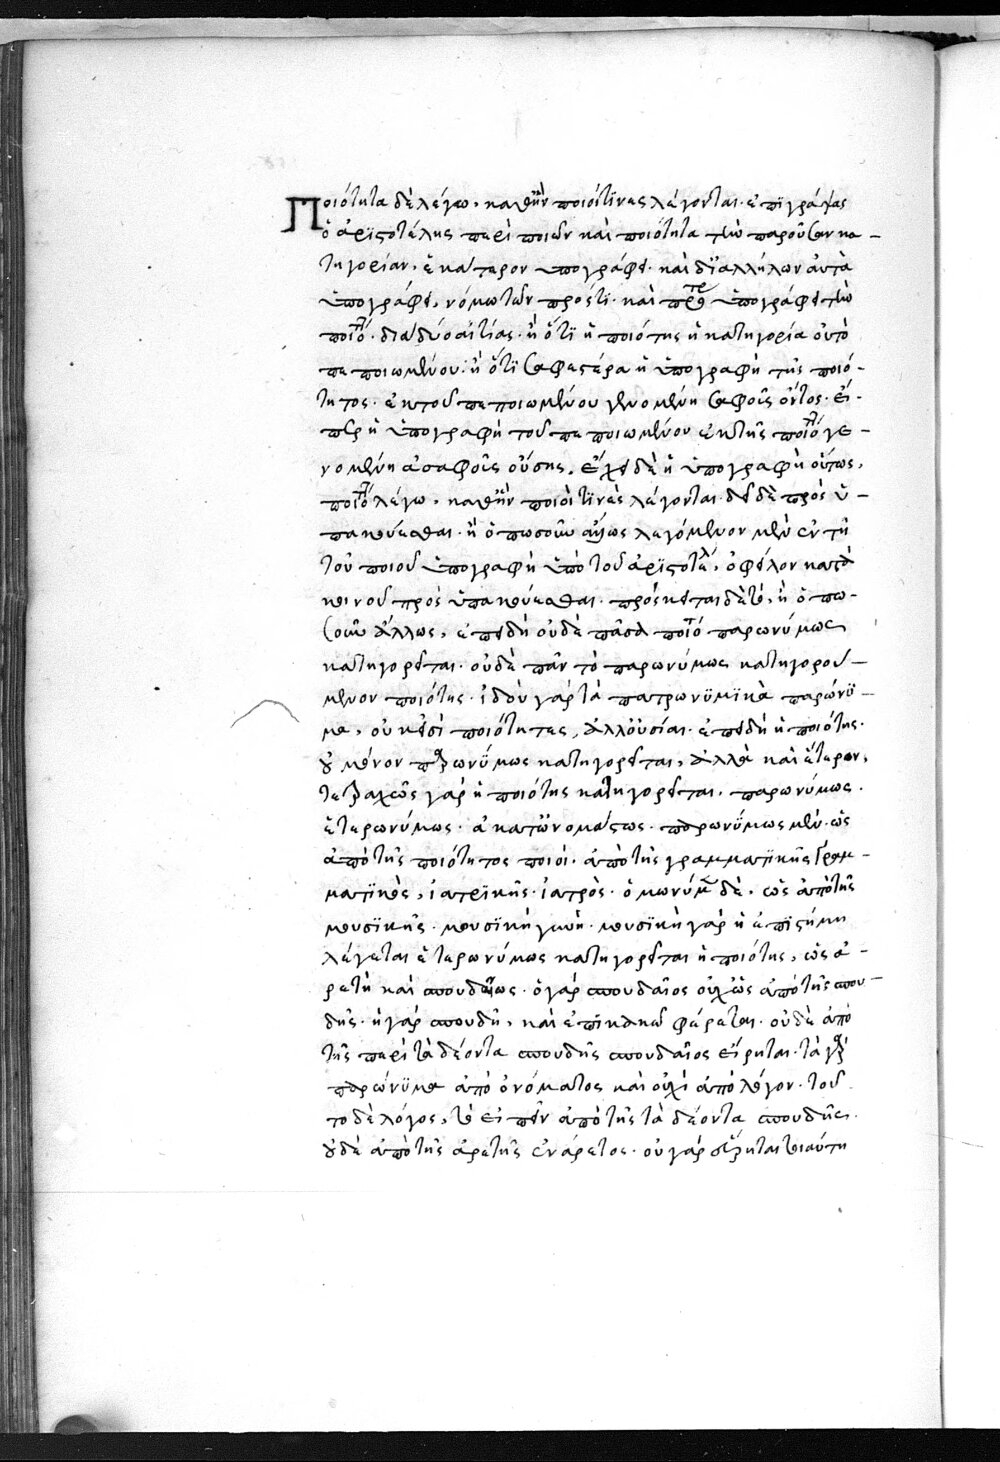 Ποιότητα δὲ λέγω, καθ' ἣν ποιοί τινες λέγονται· ἐπιγράψας
ὁ ἀριστοτέλης περὶ ποιῶν καὶ ποιότητα τὴν παροῦσαν κα-
τηγορίαν, ἑκάτερον ὑπογράφει· καὶ δι' ἀλλήλων αὐτὰ
ὑπογράφει, νόμω τῶν πρός τι· καὶ ὑπογράφει τὴν
ποιότ· διὰ δύο αἰτίας· ἢ ὅτι ἡ ποιότης ἡ κατηγορία οὐ τὸ
πεποιωμένον· ἢ ὅτι σαφεστέρα ἡ ὑπογραφὴ τῆς ποιό-
τητος· ἐκ τοῦ πεποιωμένου γενομένη σαφοῦς ὄντος· εἴ-
περ ἡ ὑπογραφὴ τοῦ πεποιωμένου ἐκ τῆς ποιότ γε-
νομένη ἀσαφοῦς οὔσης. ἔχει δὲ ἡ ὑπογραφὴ οὕτως,
ποιότ λέγω, καθ' ἣν ποιοί τινὲς λέγονται· δεῖ δὲ προσυ-
πακούεσθαι· ἢ ὁπωσοῦν ἄλλως λεγόμενον μὲν ἐν τῆ
τοῦ ποιοῦ ὑπογραφῆ ὑπὸ τοῦ ἀριστοτελ, ὀφεῖλον κατὰ
κοινοῦ προσυπακούεσθαι· πρόσκειται δὲ τὸ, ἢ ὁπω-
σοῦν ἄλλως, ἐπειδὴ οὐδὲ πᾶσα ποιότ παρωνύμως
κατηγορεῖται· οὐδὲ πᾶν τὸ παρωνύμως κατηγορού-
μενον ποιότης· ἰδοὺ γὰρ τὰ πατρωνυμικὰ παρώνυ-
μα, οὐκ εἰσὶ ποιότητες, ἀλλ' οὐσίαι· ἐπειδὴ ἡ ποιότης·
οὐ μόνον παρωνύμως κατηγορεῖται, ἀλλὰ καὶ ἕτερον,
τετραχῶς γὰρ ἡ ποιότης κατηγορεῖται. παρωνύμως.
ἑτερωνύμως· ἀκατωνομάστως· παρωνύμως μὲν· ὡς
ἀπὸ τῆς ποιότητος ποιοί· ἀπὸ τῆς γραμματικῆς γραμ-
ματικὸς, ἰατρικῆς· ἰατρὸς· ὁμωνύμ δὲ, ὡς ἀπὸ τῆς
μουσικῆς· μουσικὴ γυνὴ· μουσικὴ γὰρ ἡ ἐπιστήμη
λέγεται ἑτερωνύμως κατηγορεῖται ἡ ποιότης, ὡς ἀ-
ρετὴ καὶ σπουδαῖος· ὁ γὰρ σπουδαῖος οὐχ ὡς ἀπὸ τῆς σπου-
δῆς· ἡ γὰρ σπουδὴ, καὶ ἐπὶ κακῶ φέρεται· οὐδὲ ἀπὸ
τῆς περὶ τὰ δέοντα σπουδῆς σπουδαῖος εἴρηται· τὰ γὰρ
παρώνυμα ἀπὸ ὀνόματος καὶ οὐχὶ ἀπὸ λόγον· τοῦ
το δὲ λόγος, τὸ εἰπεῖν ἀπὸ τῆς τὰ δέοντα σπουδῆς·
οὐδὲ ἀπὸ τῆς ἀρετῆς ἐνάρετος· οὐ γὰρ εἴρηται τοιαύτη